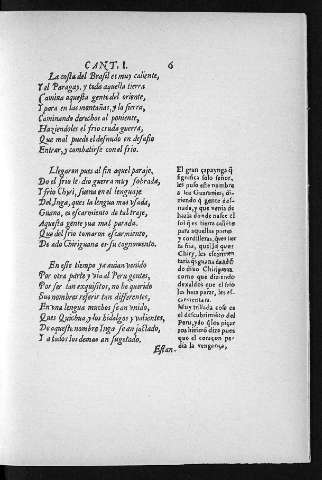 CANT. I. 6
La costa del Brasil es muy caliente,
Y el Paragay, y toda aquella tierra
Camina aquesta gente del oriente,
Y para en las montañas, y la sierra,
Caminando derechos al poniente,
Haziendoles el frio cruda guerra,
Que mal puede el desnudo en desafio
Entrar, y combatirse con el frio.
Llegaron pues al fin aquel paraje,
Do el frio le dio guerra muy sobrada,
Y frio Chyri, suena en el lenguage
Del Inga, que es la lengua mas vsada,
Guana, es escarmiento de tal traje,
Aquesta gente yua mal parada.
Que del frio tomaron escarmiento,
De ado Chiriguana es su cognomento.
En este tiempo ya auian venido
Por otra parte y via al Peru gentes,
Por ser tan exquisitos, no he querido
Sus nombres referir tan differentes,
En vna lengua muchos se an vnido,
Que es Quichua, y los hidalgos y valientes,
De aqueste nombre Inga se an jactado,
Y a todos los demas an sugetado.
Estan-
El gran capaynga q̃
significa solo señor,
les puso este nombre
a los Guaranies, di
ziendo q̃ gente des-
nuda, y que venia de
hazia donde nasce el
sol q̃ es tierra caliẽte
para aquellas partes
y cordillera, que es tier
ra fria, quiça q̃ que es
Chiry, les escarmen
taria q̃ es guana de adõ
de dixo Chiriguana,
como que diziendo
dexaldos que el frio
los hara parar, les es-
carmentara.
Muy trillada cosa es en
el descubrimiẽto del
Peru, y do q̃ los piçar
ros hizierõ dizo pues
que el coraçon per-
dia la vengança,